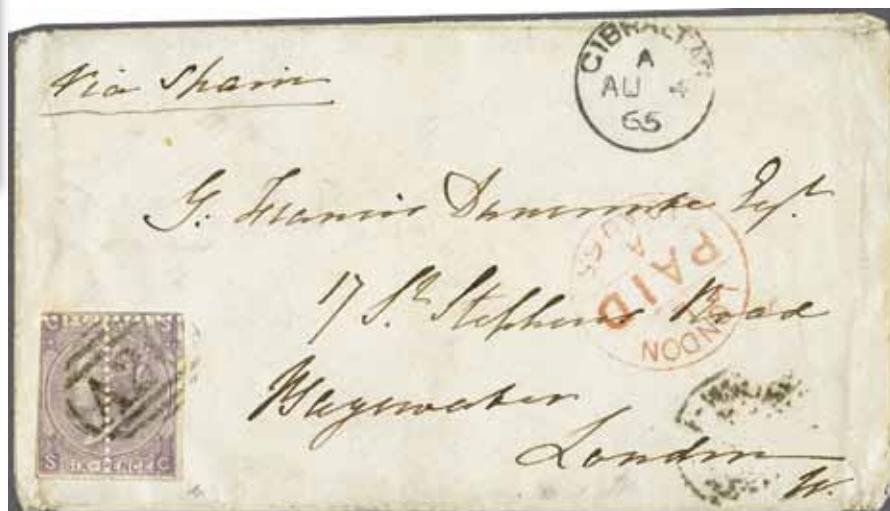 Via Spain
GIBRALTAR
A
AU 4
65
G. Francis Esqr.
17 St. Stephens Road
Bayswater
London
W.
LONDON
PAID
A
AU 65
A26
SIX-PENCE
S C
C S